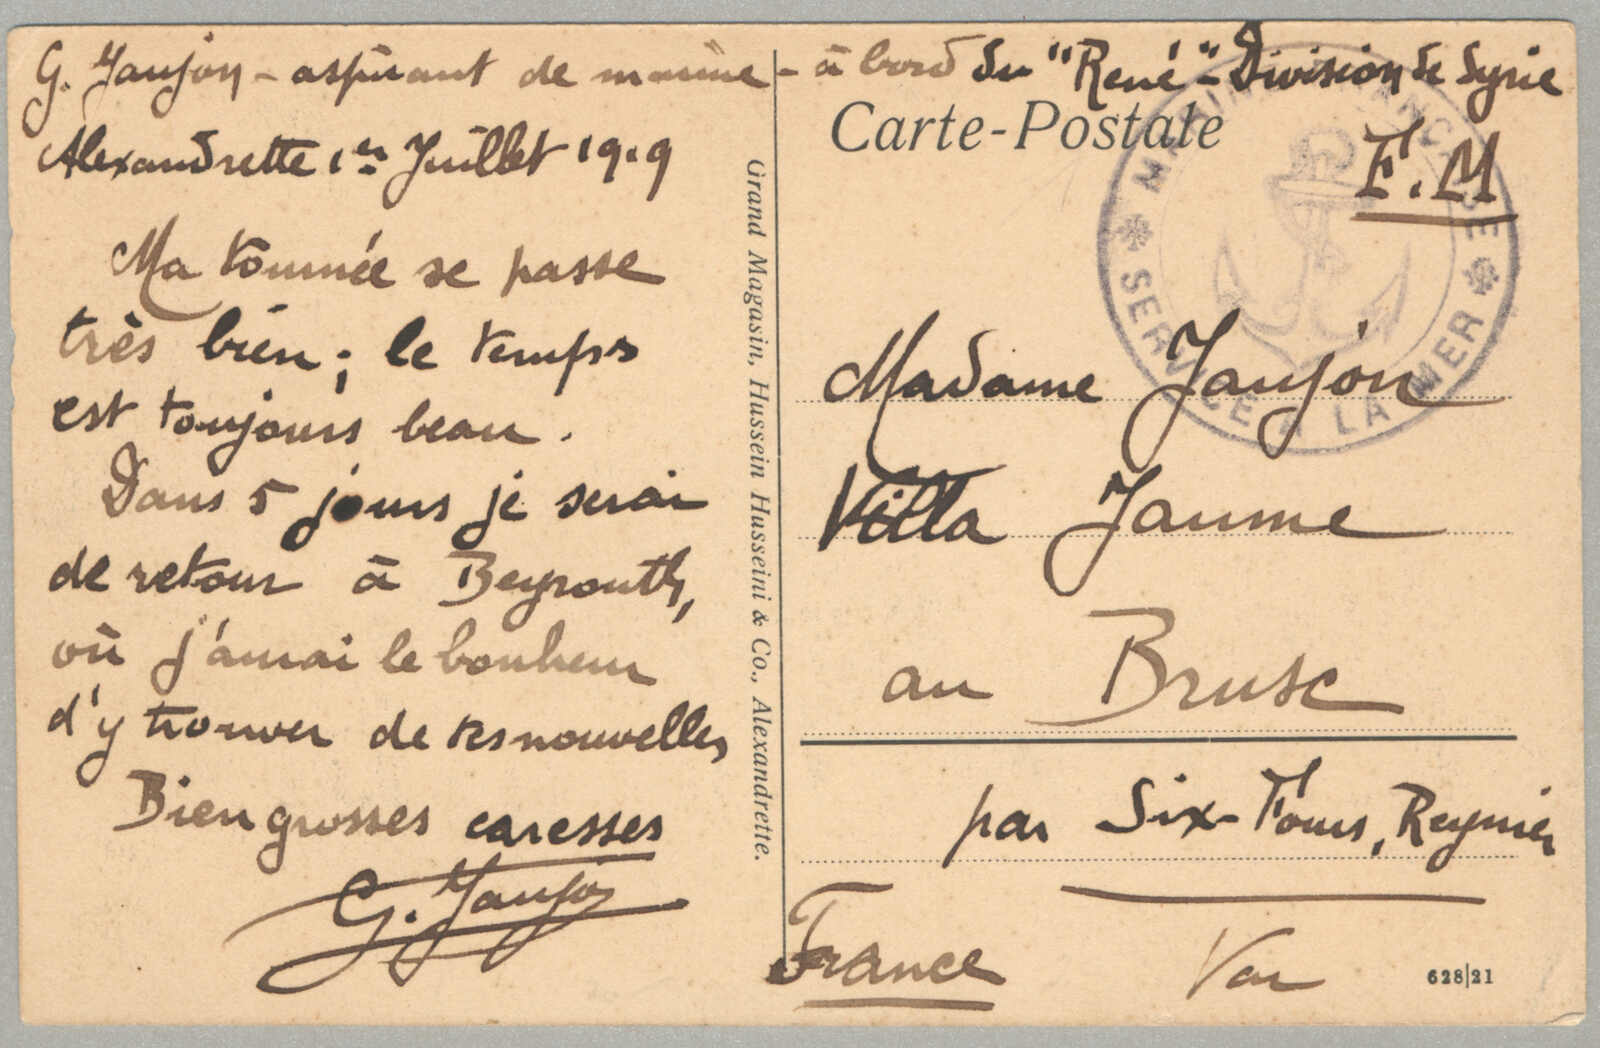 G. Jaujon - aspirant de marine - à bord du "René" - Division de Syrie
Alexandrette 1er Juillet 1919
Ma tournée se passe
très bien; le temps
est toujours beau.
Dans 5 jours je serai
de retour à Beyrouth,
où j'aurai le bonheur
d'y trouver de tes nouvelles
Bien grosses caresses
G. Jaujon
Grand Magasin, Hussein Husseini & Co., Alexandrette.
Carte-Postale
F.M
MARINE FRANÇAISE
SERVICE A LA MER
Madame Jaujon
Villa Jaume
au Brusc
par Six-Fours, Reynier
France Var
628|21